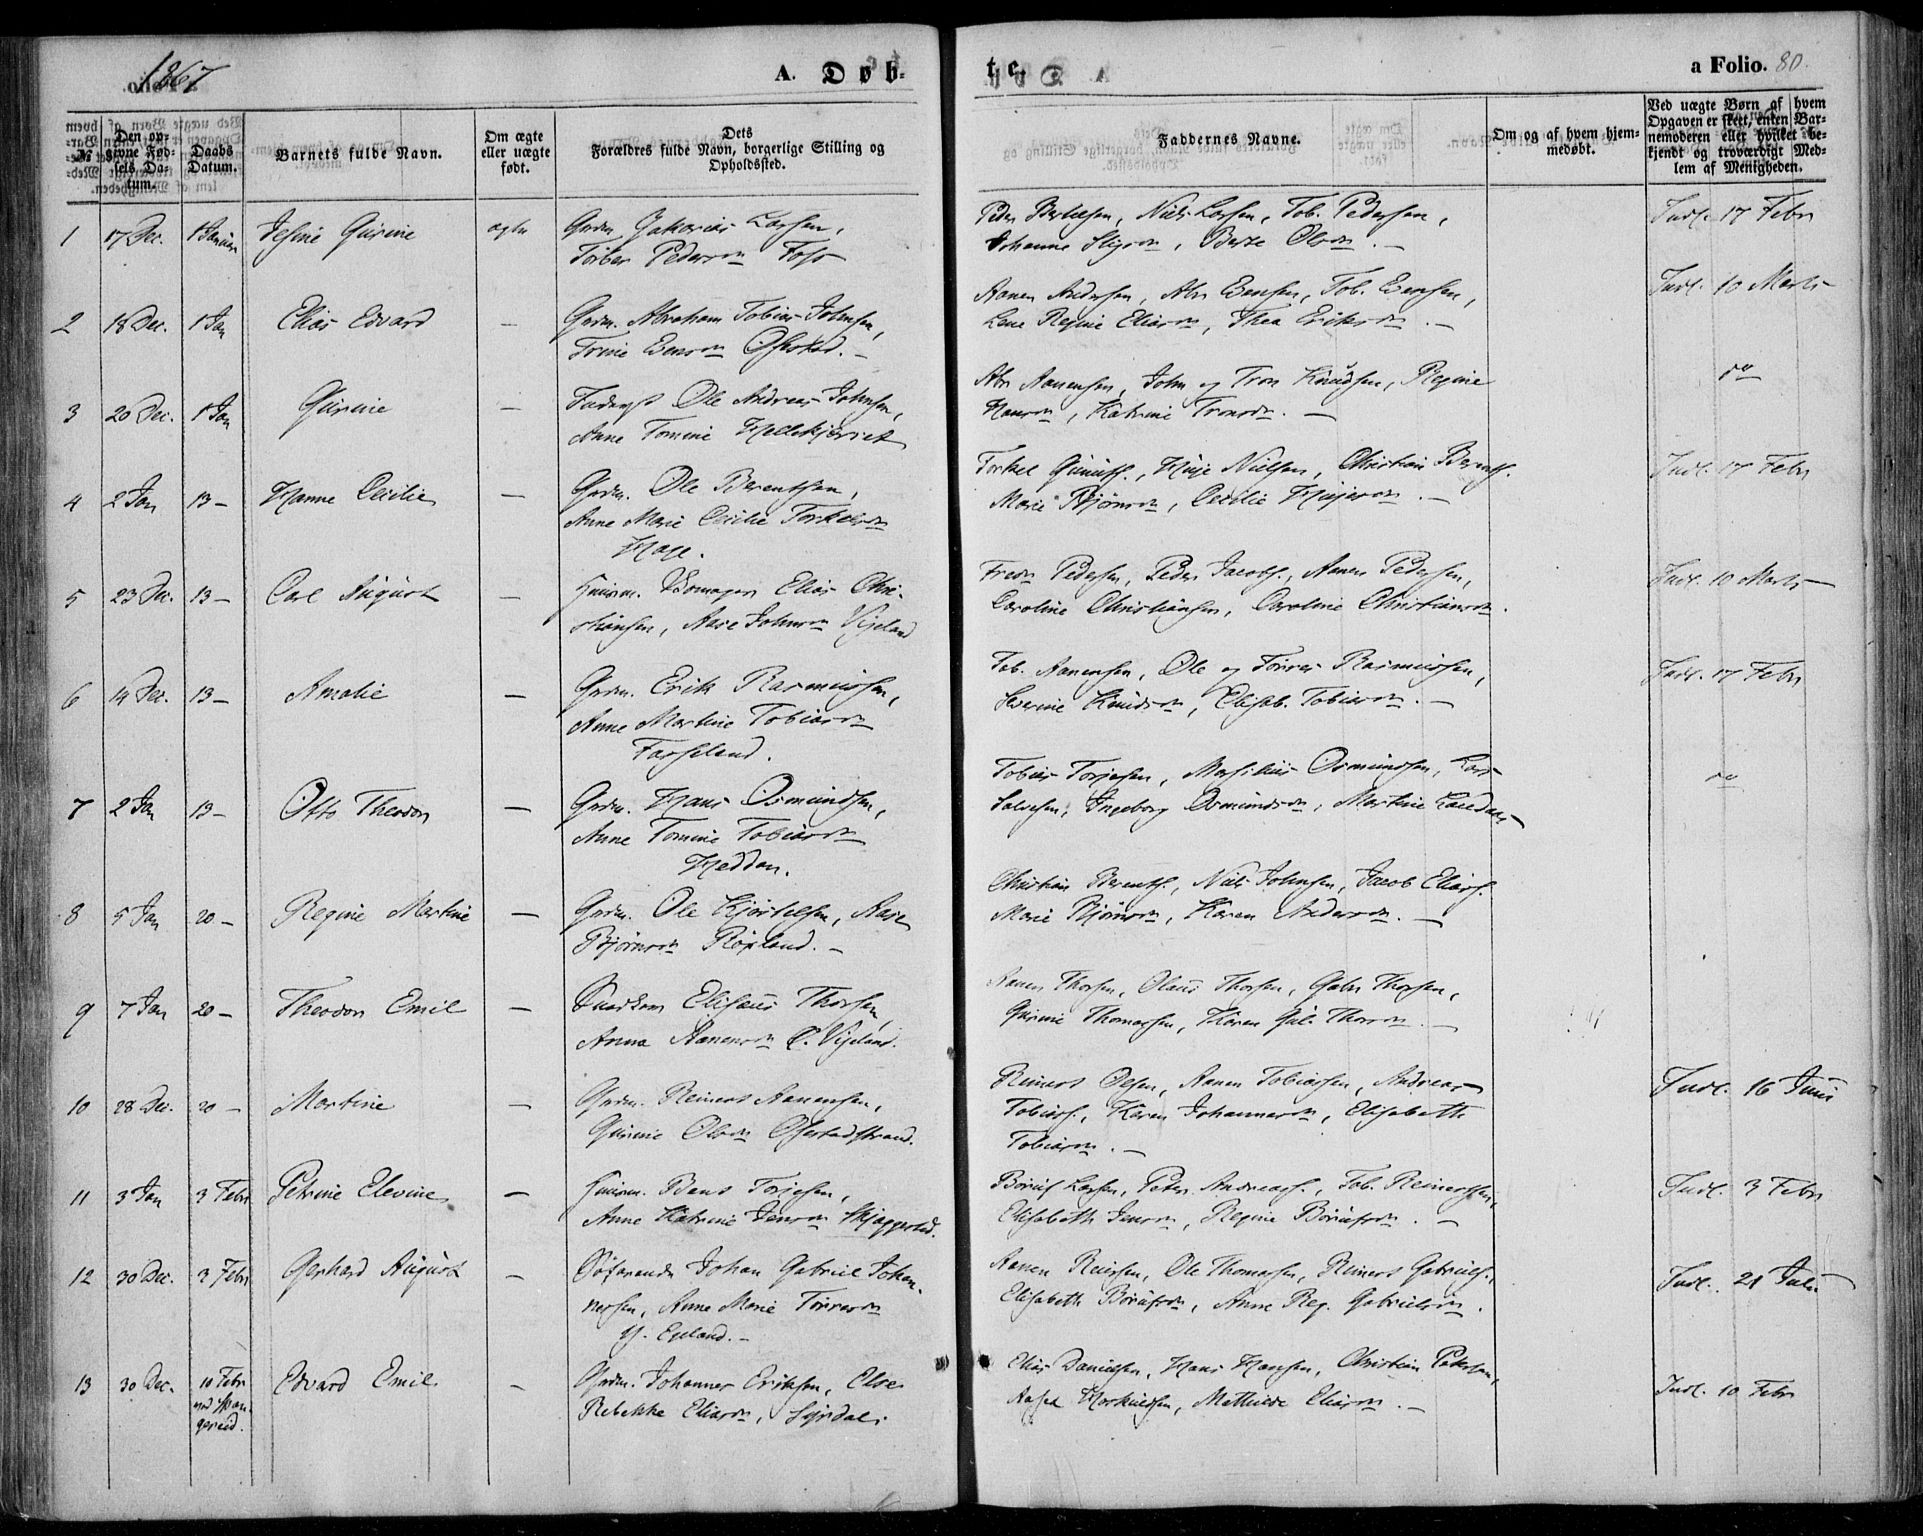 1867
A. Døb-
te.
a Folio. 80.
№
Den opgivne Fødsels Datum.
Daabs Datum.
Barnets fulde Navn.
Om ægte eller uægte født.
Dets Forældres fulde Navn, borgerlige Stilling og Opholdssted.
Faddernes Navne.
Om og af hvem hjemmedøbt.
Ved uægte Børn af hvem Opgaven er skeet, enten Barnemoderen eller hvilket bekjendt og troværdigt Medlem af Menigheden.
1 17 Dec. 1 Januar Jesine Gurine ægte Grdm. Zakarias Larsen,
Torber Pedersdn Foss
Peder Berlaesen, Niels Larsen, Tob. Pedersen,
Johanne Stigsdn, Berte Olsdn. –
Indl. 17 Febr
2 18 Dec. 1 Jan Elias Edvard – Grdm. Abraham Tobias Johnsen,
Trine Evensdn Ofstad. –
Aanen Andersen, Abr Evensen, Tob. Evensen,
Lene Regine Eliasdn, Thea Eriksdn. –
Indl. 10 Marts
3 20 Dec. 1 Jan Gurine – Ole Andreas Johnsen,
Anne Tomine
Abr Aanensen, John og Tron Knudsen, Regine
Hansdn, Katrine Tronsdn. –
do
4 2 Jan 13 – Hanne Cecilie – Grdm. Ole Berentsen,
Anne Marie Cecilie Torkelsdn
Hage.
Torkel Gunuls., Huje Nielsen, Christian Berents.
Marie Bjørnsdn, Cecilie Hujesdn. –
Indl. 17 Febr
5 23 Dec. 13 – Carl August – Huusm. Elias Chri-
stiansen, Aase Johnsdn Vigeland
Fredr Pedersen, Peder Jacobs., Aanen Pedersen,
Caroline Christiansen, Caroline Christiansdn.
Indl. 10 Marts
6 14 Dec. 13 – Amalie – Grdm. Erik Rasmussen,
Anne Martine Tobiasdn
Fasseland.
Tob. Aanensen, Ole og Torres Rasmussen,
Severine Knudsdn, Elisab. Tobiasdn. –
Indl. 17 Febr
7 2 Jan 13 – Otto Theodor – Grdm. Hans Osmundsen,
Anne Tomine Tobiasdn
Heddan.
Tobias Torjesen, Osmundsen, Lars
Salvesen, Ingeborg Osmundsdn, Martine
do
8 5 Jan 20 – Regine Martine – Grdm. Ole Kjørtelsen, Aase
Bjørnsdn Røyland. –
Christian Berents., Niels Johnsen, Jacob Elias.
Marie Bjørnsdn, Karen Andersdn. –
9 7 Jan 20 – Theodor Emil – Elisæus Thorsen,
Anna Aanensdn Vigeland.
Aanen Thorsen, Olaus Thorsen, Gabr Thorsen,
Gurine Thomassen, Karen Gul. Thorsdn. –
10 28 Dec. 20 – Martine – Grdm. Reinert Aanensen,
Gurine Olsdn Ofstadstrand.
Reinert Olsen, Aanen Tobiassen, Andreas
Tobias., Karen Johannesdn, Elisabeth
Tobiasdn. –
Indl. 16 Juni
11 3 Jan 3 Febr Petrine Elevine – Huusm. Bent Torjesen,
Anne Katrine Jensdn Skjaggestad.
Børuf Larsen, Peter Andreas., Tob. Reinertsen,
Elisabeth Jensdn, Regine Børufsdn. –
Indl. 3 Febr
12 30 Dec. 3 Febr Gerhard August – Søfarende Johan Gabriel Johan-
nessen, Anne Marie Torresdn
Y. Egeland. –
Aanen Reiersen, Ole Thomassen, Reinert Gabriels.
Elisabeth Børufsdn, Anne Reg. Gabrielsdn.
Indl. 21 Juli
13 30 Dec. 10 Febr
ved Span-
gereid. Edvard Emil – Grdm. Johannes Eriksen, Else
Rebekka Eliasdn, Syrdal.
Elias Danielsen, Hans Hansen, Christian Pedersen,
Aasel, Mathilde Eliasdn. –
Indl. 10 Febr